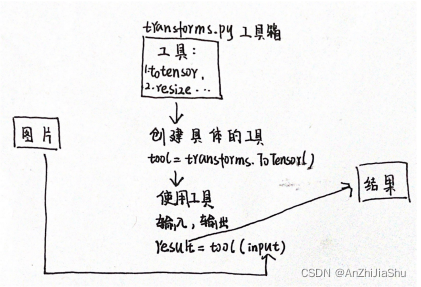 transforms.py 工具箱
工具:
1.totensor,
2.resize...
创建具体的工具
图片
tool=transforms.ToTensor()
结果
使用工具
输入,输出
result=tool(input)
CSDN @AnZhiJiaShu